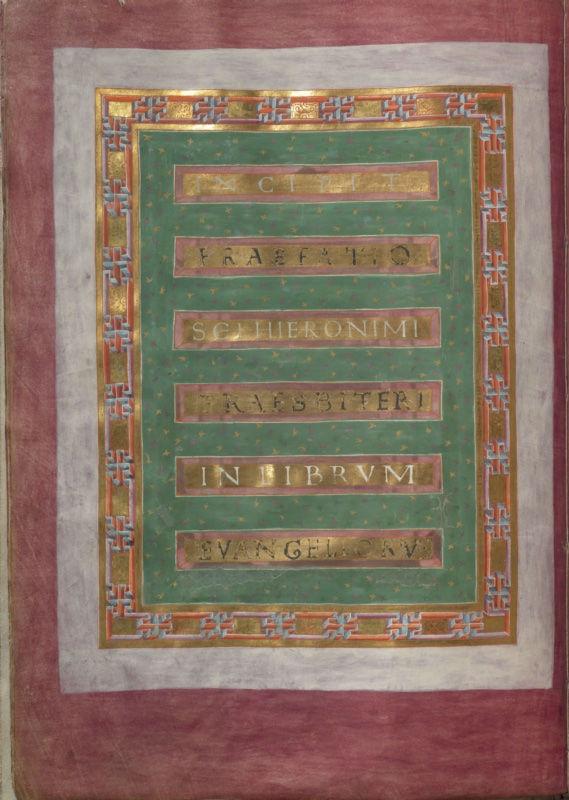 INCIPIT
PRAEFATIO
SCI HIERONIMI
PRAESBITERI
IN LIBRVM
EVANGELIORV